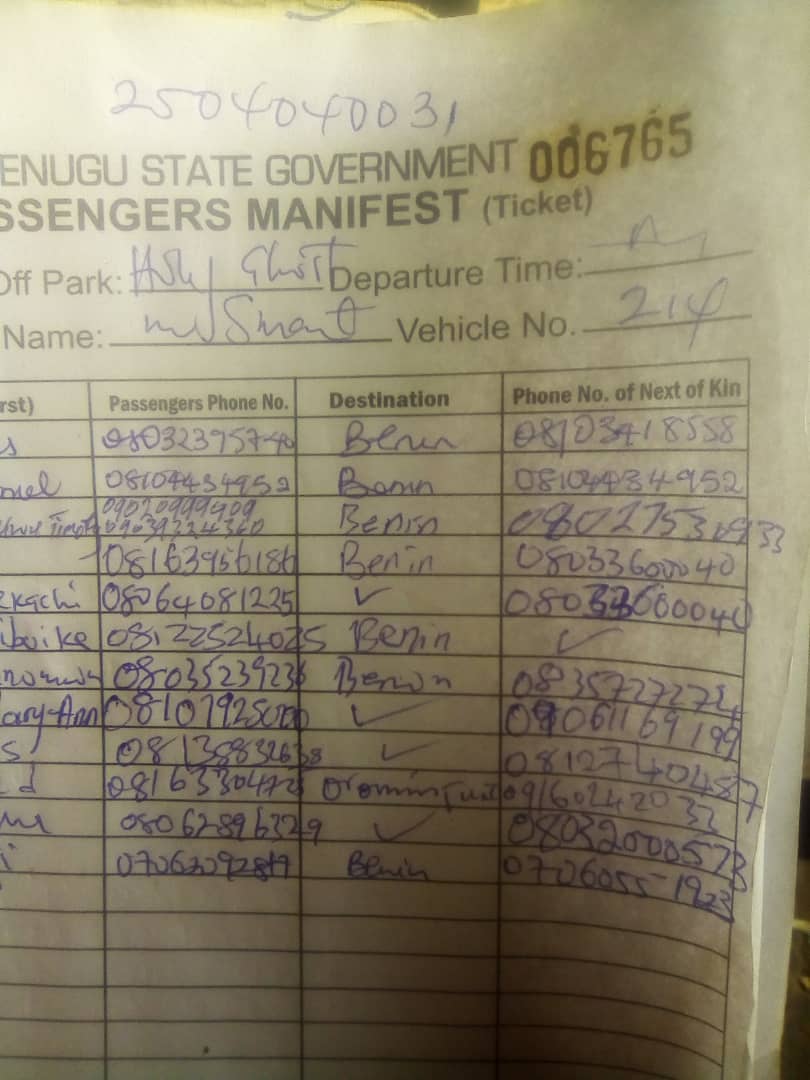 2504040031
ENUGU STATE GOVERNMENT 006765
SSENGERS MANIFEST (Ticket)
Off Park: Holy Ghost Departure Time:
Name: Mr Smart Vehicle No. 214
rst) Passengers Phone No. Destination Phone No. of Next of Kin
s 08032395740 Benin 08103418558
08104434952 Benin 08104434952
09020999909
09039224360 Benin
08163956186 Benin 08033600040
kachi 08064081225 ✓ 08033600040
ibuike 08122524025 Benin ✓
08035239236 Benin
ary-Ann 08107925000 ✓ 09061169199
s 08135832638 ✓ 08127404887
d 0816330472 09160242032
08062896329 ✓ 08032000573
i Benin 07060551923